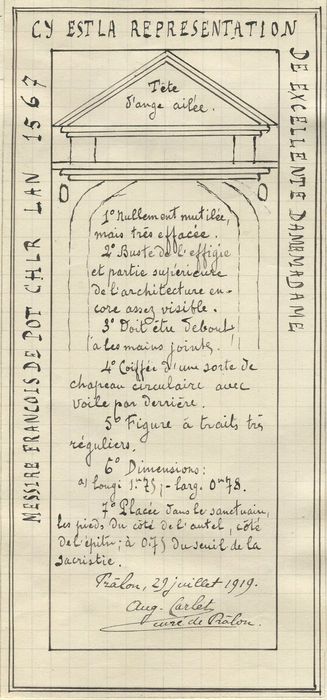 CY EST LA REPRESENTATION
DE EXCELLENTE DAME MADAME
MESSIRE FRANCOIS DE POT CHLR LAN 1567
Tête
d'ange ailée.
1° Nullement mutilée,
mais très effacée.
2° Buste de l'effigie
et partie supérieure
de l'architecture en-
core assez visible.
3° Doit être debout
à les mains jointes.
4° Coiffée d'une sorte de
chapeau circulaire avec
voile par derrière.
5° Figure à traits très
réguliers.
6° Dimensions:
a) longr 1m75; - larg. 0m78.
7° Placée dans le sanctuaire,
les pieds du côté de l'autel, côté
de l'épitre; à 0.75 du seuil de la
sacristie.
Prâlon, 29 juillet 1919.
Aug. Carlet
curé de Prâlon.